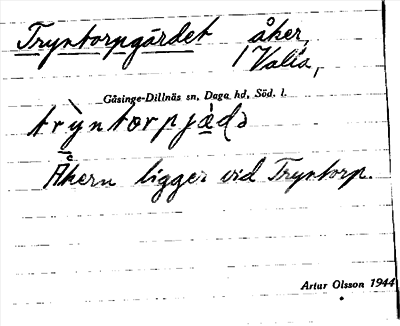 Tryntorpgärdet åker,
1 Valla,
Gåsinge-Dillnäs sn, Daga hd, Söd. l.
trỳntorpjä̀ḍə
Åkern ligger vid Tryntorp.
Artur Olsson 1944